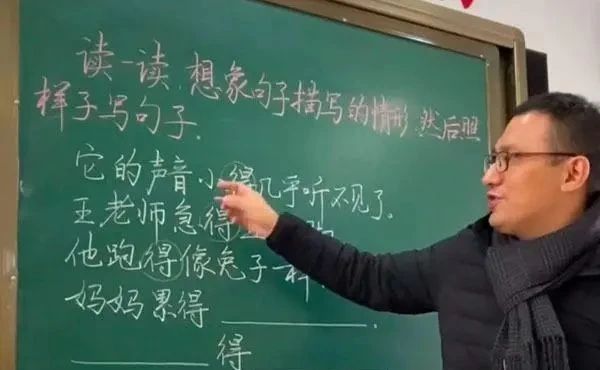 读一读,想象句子描写的情形,然后照
样子写句子.
它的声音小得几乎听不见了.
王老师急得
他跑得像兔子一样.
妈妈累得________.
________得